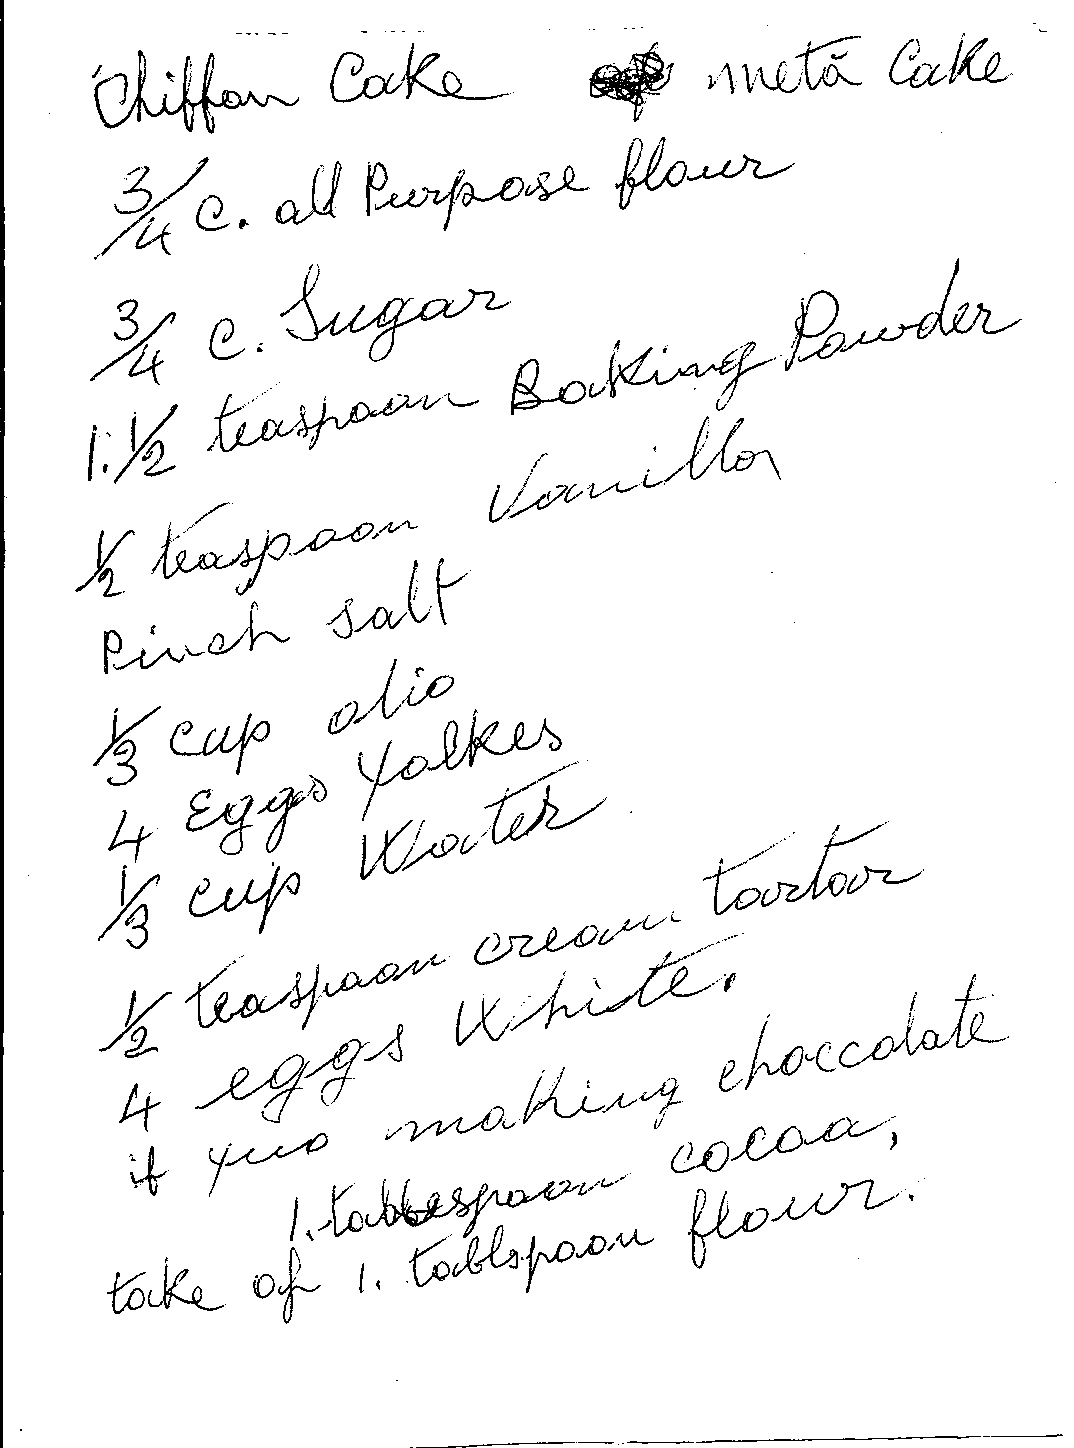 Chiffon Cake metà Cake
3/4 c. all Purpose flour
3/4 c. Sugar
1. 1/2 teaspoon Baking Powder
1/2 teaspoon Vanilla
Pinch salt
1/3 cup olio
4 Eggs Yolkes
1/3 cup Water
1/2 teaspoon cream tartar
4 eggs White.
if yuo making choccolate
1. tablespoon cocoa,
take of 1. tablspoon flour.